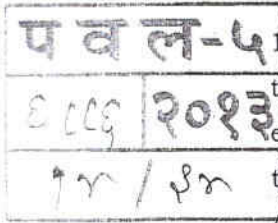 प व ल-५
६८८६ २०१३
१४ /